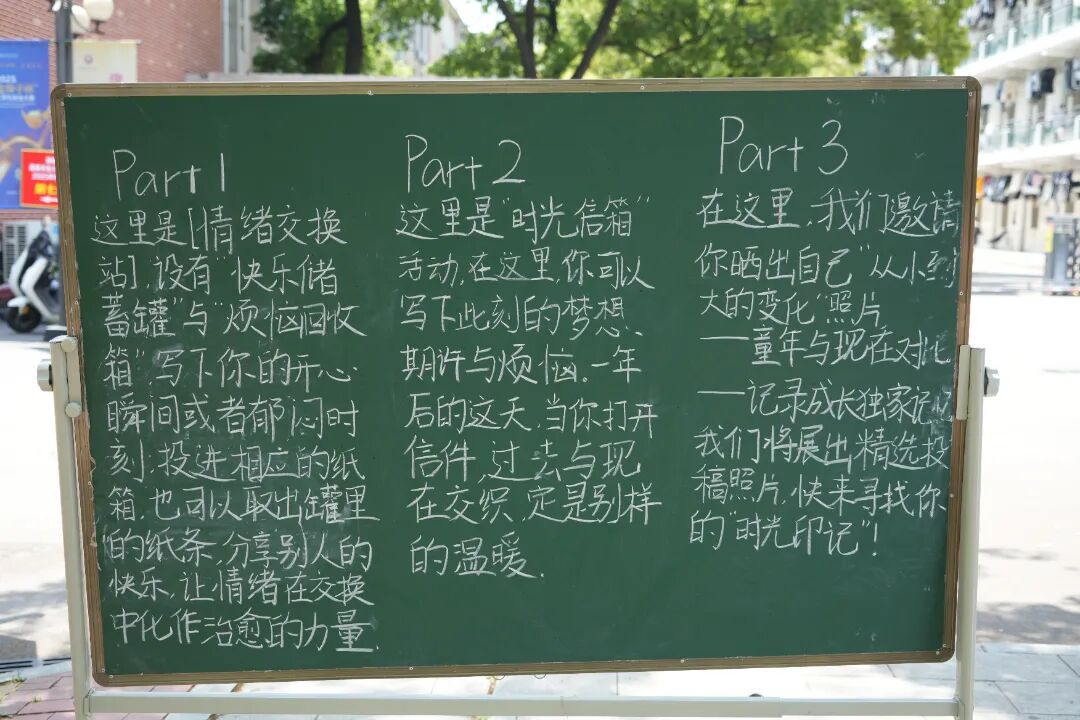 Part 1
这里是[情绪交换
站],设有"快乐储
蓄罐"与"烦恼回收
箱",写下你的开心
瞬间或者郁闷时
刻,投进相应的纸
箱,也可以取出罐里
的纸条,分享别人的
快乐,让情绪在交换
中化作治愈的力量.
Part 2
这里是"时光信箱"
活动,在这里,你可以
写下此刻的梦想、
期许与烦恼.一年
后的这天,当你打开
信件,过去与现
在交织,定是别样
的温暖.
Part 3
在这里,我们邀请
你晒出自己"从小到
大的变化"照片
—童年与现在对比
—记录成长独家记
我们将展出精选投
稿照片,快来寻找你
的"时光印记"!
2025